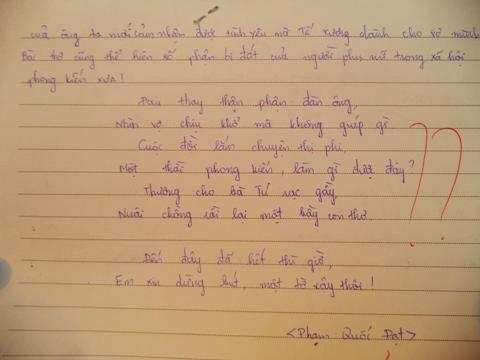 của ông ta mới cảm nhận được tình yêu mà Tế Xương dành cho vợ mình
Bài thơ cũng thể hiện số phận bi đát của người phụ nữ trong xã hội
phong kiến xưa!
Đau thay thận phận đàn ông,
Nhìn vợ chịu khổ mà không giúp gì
Cuộc đời lắm chuyện thị phi,
Một thời phong kiến, làm gì được đây?
Thương cho bà Tú vạc gầy,
Nuôi chồng rồi lại một bầy con thơ.
Đến đây đã hết thì giờ,
Em xin dừng bút, một tờ vậy thôi!
<Phạm Quốc Đạt>
??